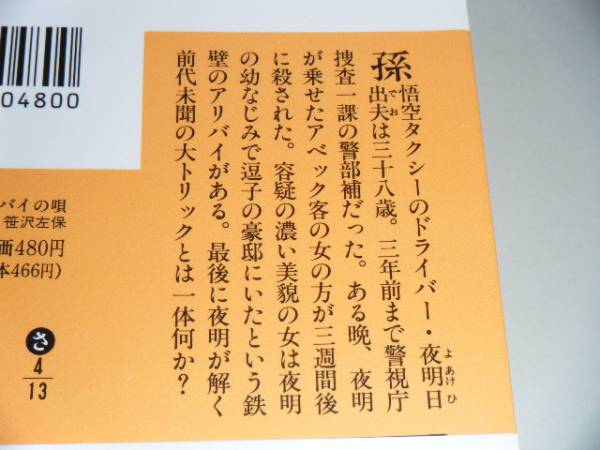 孫悟空タクシーのドライバー・夜明日
出夫は三十八歳。三年前まで警視庁
捜査一課の警部補だった。ある晩、夜明
が乗せたアベック客の女の方が三週間後
に殺された。容疑の濃い美貌の女は夜明
の幼なじみで逗子の豪邸にいたという鉄
壁のアリバイがある。最後に夜明が解く
前代未聞の大トリックとは一体何か?
よあけひ
でお
04800
バイの唄
笹沢左保
価480円
本466円)
さ
4
13